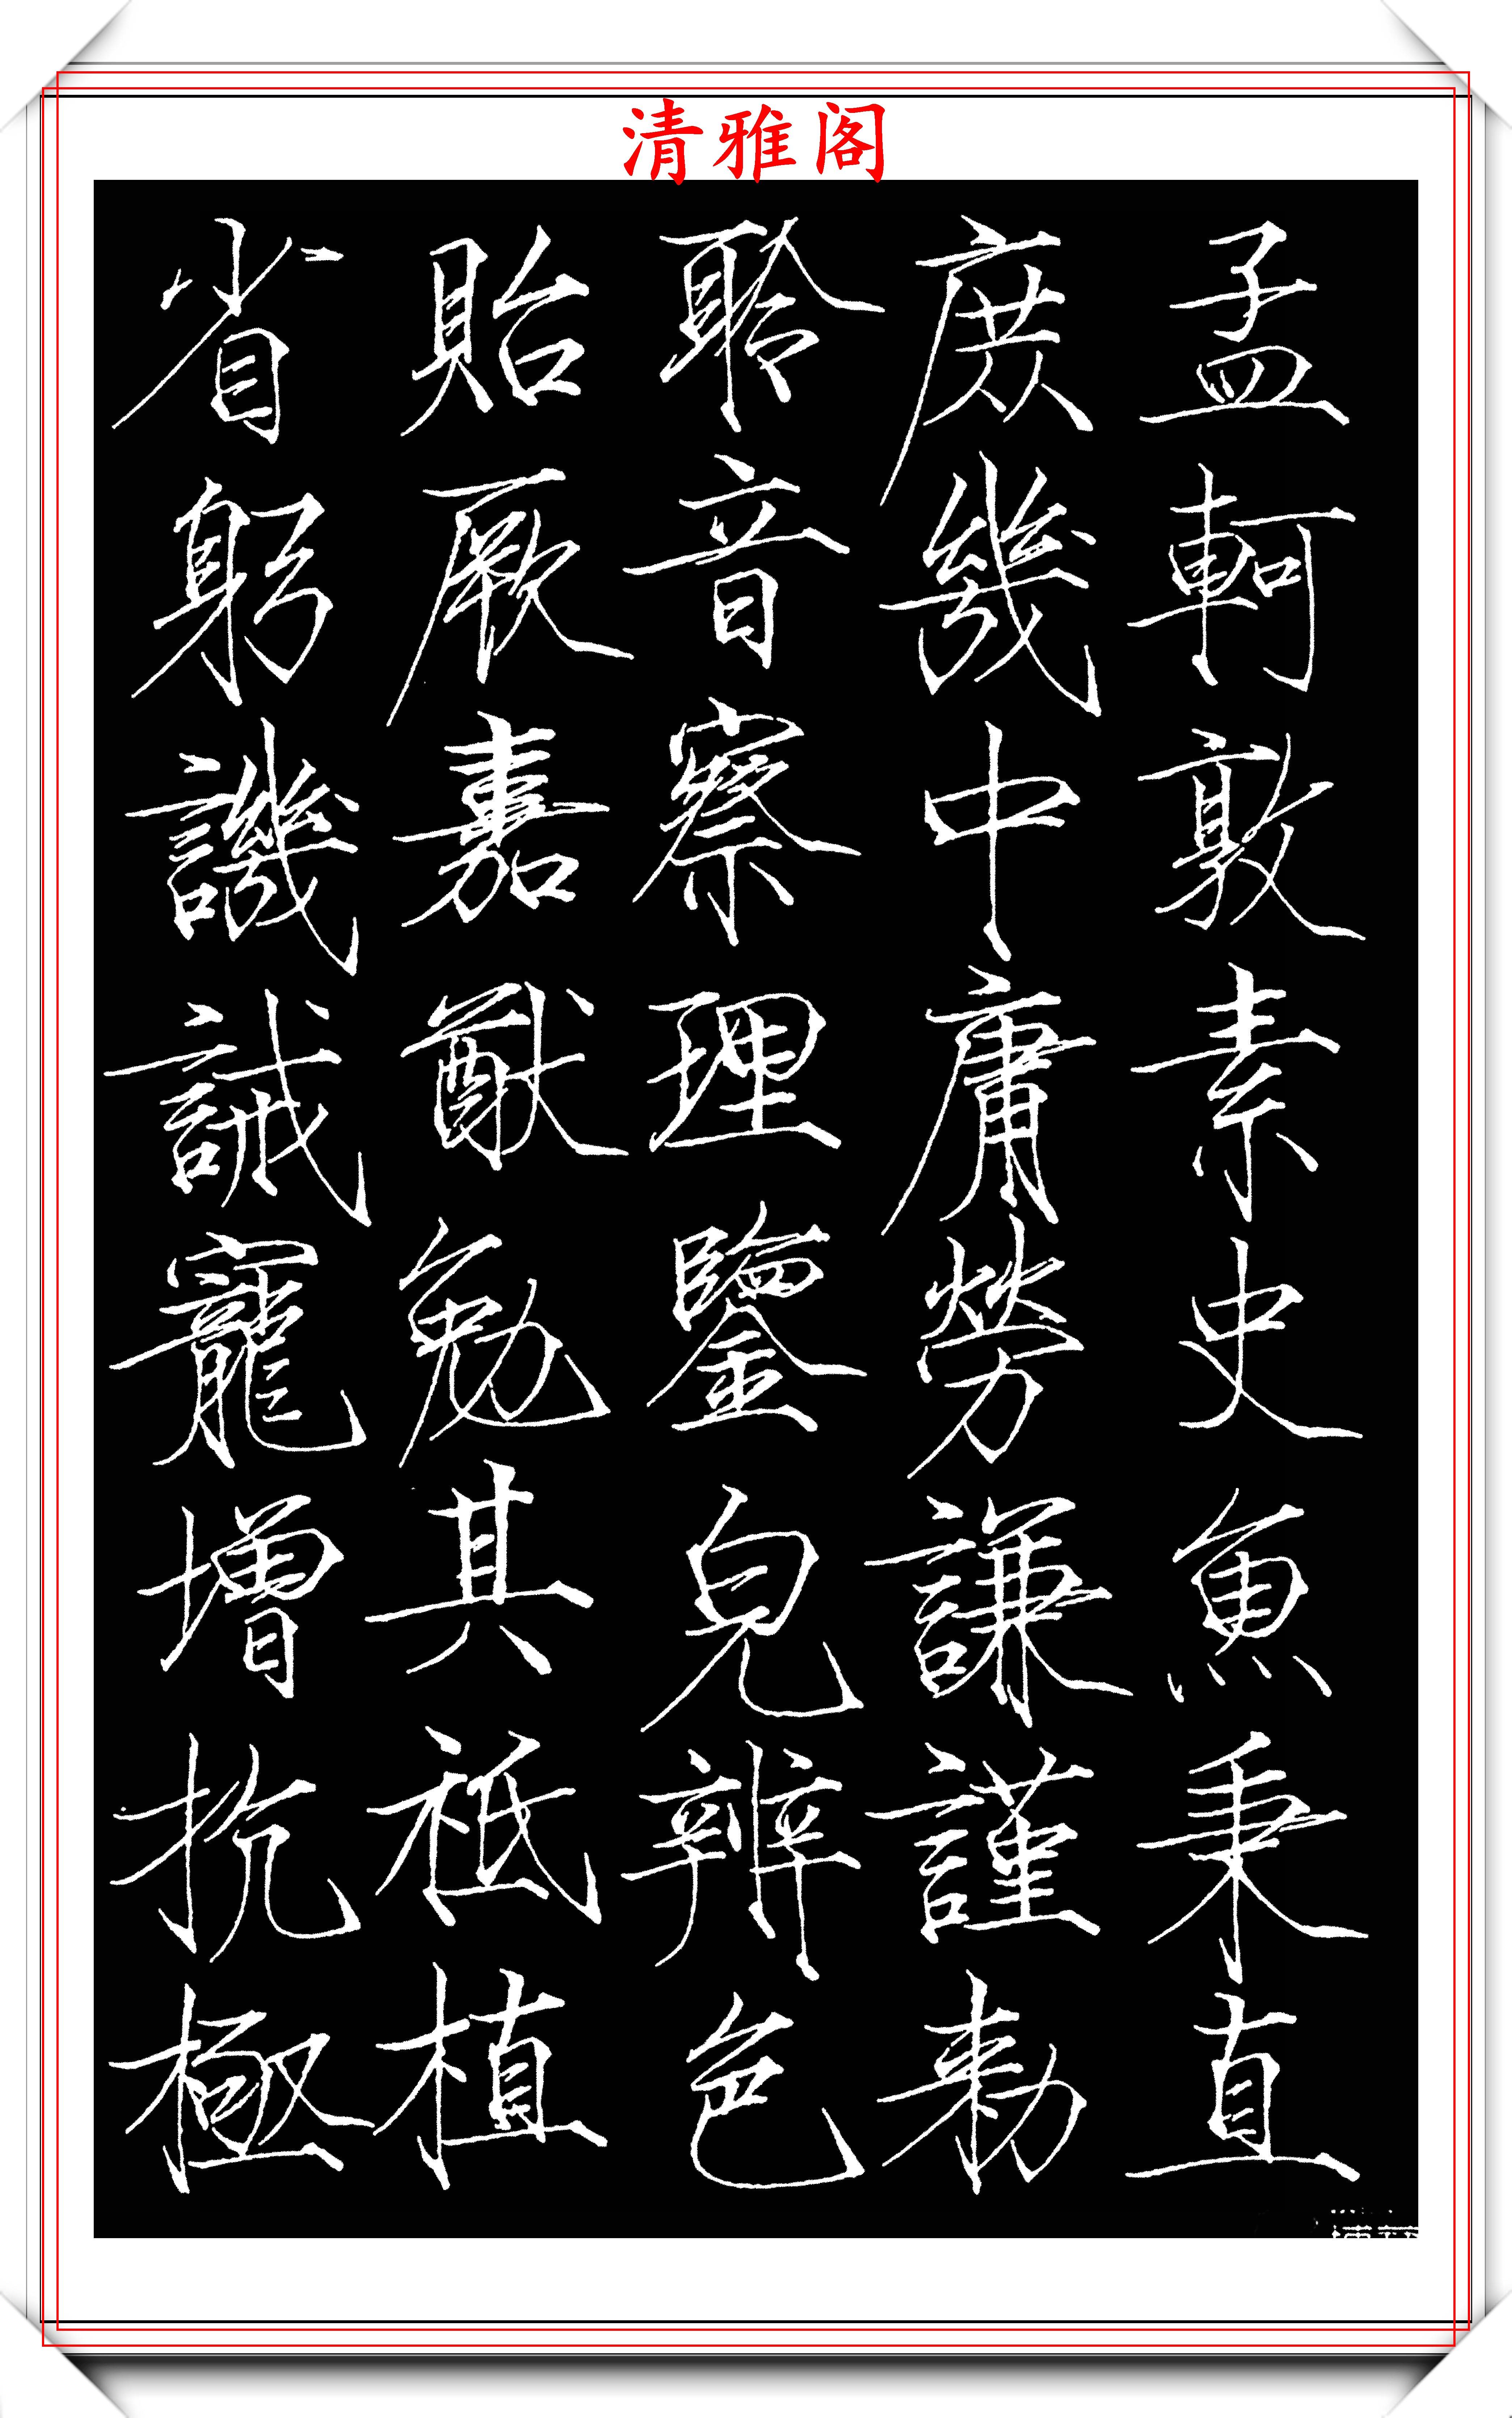 清雅阁
孟軻敦素史魚秉直
庶幾中庸勞謙謹勅
聆音察理鑒皃辨色
貽厥嘉猷勉其祗植
省躬譏誡寵增抗極